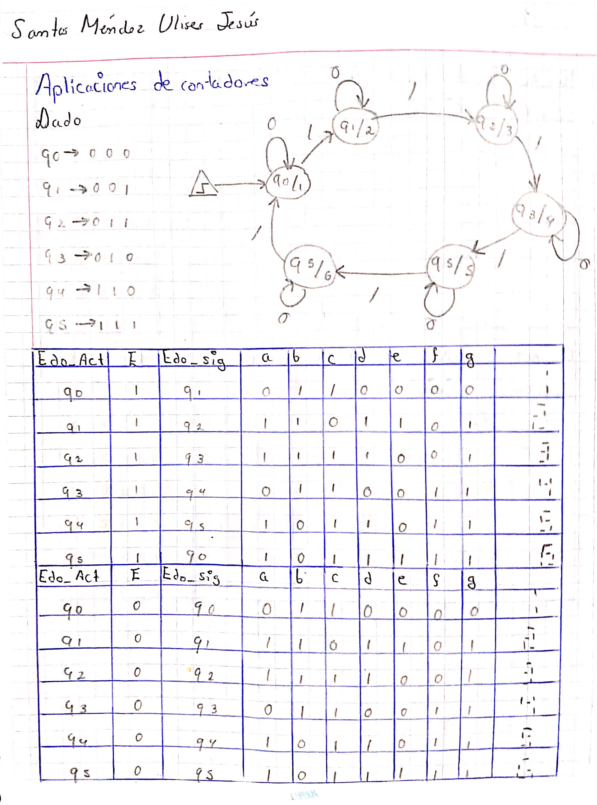 Santos Méndez Ulises Jesús
Aplicaciones de contadores
Dado
q0 → 0 0 0
q1 → 0 0 1
q2 → 0 1 1
q3 → 0 1 0
q4 → 1 1 0
q5 → 1 1 1
0
1
0
1
0
1
0
1
0
1
0
1
q0/1
q1/2
q2/3
q3/4
q5/5
q5/6
S
Edo_Act E Edo_sig a b c d e f g
q0 1 q1 0 1 1 0 0 0 0
q1 1 q2 1 1 0 1 1 0 1
q2 1 q3 1 1 1 1 0 0 1
q3 1 q4 0 1 1 0 0 1 1
q4 1 q5 1 0 1 1 0 1 1
q5 1 q0 1 0 1 1 1 1 1
Edo_Act E Edo_sig a b c d e f g
q0 0 q0 0 1 1 0 0 0 0
q1 0 q1 1 1 0 1 1 0 1
q2 0 q2 1 1 1 1 0 0 1
q3 0 q3 0 1 1 0 0 1 1
q4 0 q4 1 0 1 1 0 1 1
q5 0 q5 1 0 1 1 1 1 1